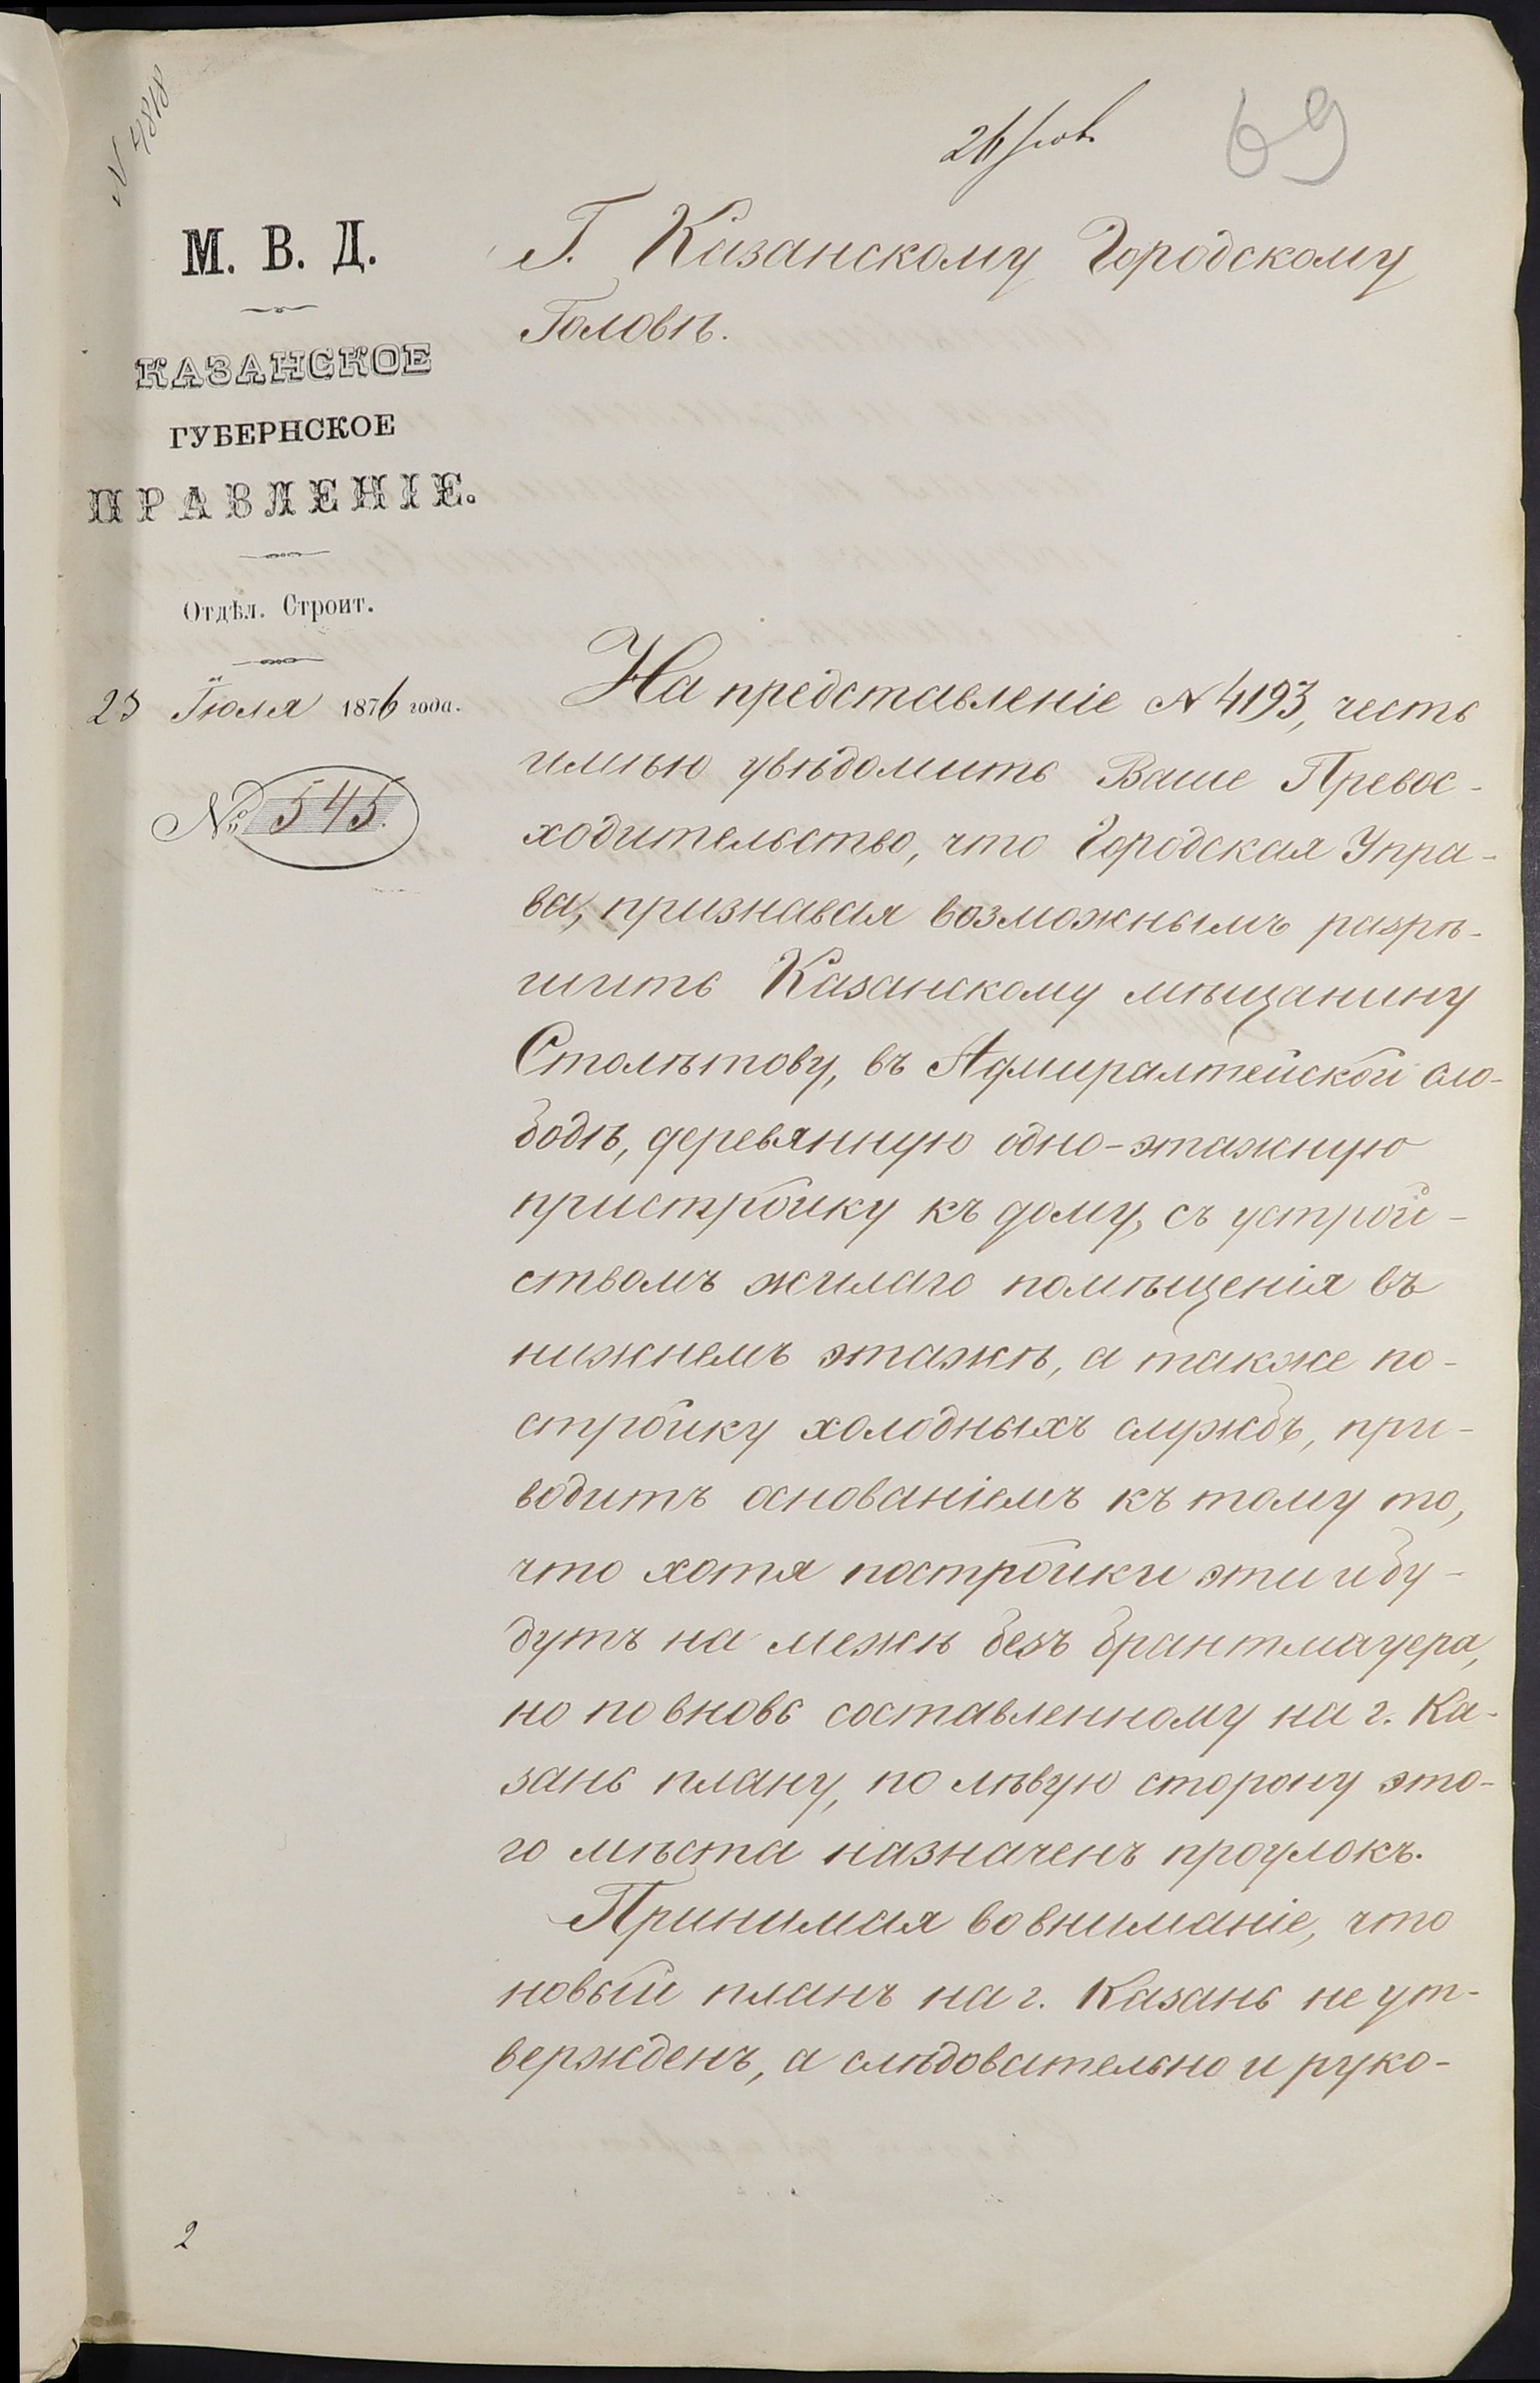 N 4818
69
М. В. Д.
КАЗАНСКОЕ
ГУБЕРНСКОЕ
ПРАВЛЕНІЕ.
Отдѣл. Строит.
23 Іюля 1876 года.
№ 545.
Г. Казанскому Городскому
Головѣ.
На представленіе № 4193, честь
имѣю увѣдомить Ваше Превос-
ходительство, что Городская Упра-
ва, признавая возможнымъ разрѣ-
шить Казанскому мѣщанину
Столѣтову, въ Адмиралтейской сло-
бодѣ, деревянную одно-этажную
пристройку къ дому, съ устрой-
ствомъ жилаго помѣщенія въ
нижнемъ этажѣ, а также по-
стройку холодныхъ службъ, при-
водитъ основаніемъ къ тому то,
что хотя постройки эти и бу-
дутъ на межѣ безъ брантмауера,
но по вновь составленному на г. Ка-
зань плану, по лѣвую сторону это-
го мѣста назначенъ проулокъ.
Принимая во вниманіе, что
новый планъ на г. Казань не ут-
вержденъ, а слѣдовательно и руко-
2